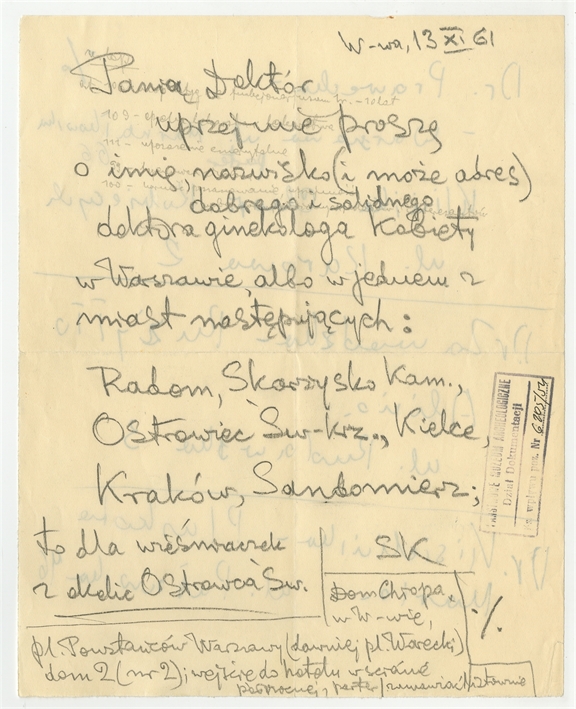 W-wa, 13 XI 61
Panią Doktór
uprzejmie proszę
o imię nazwisko (i może adres)
dobrego i solidnego
doktora ginekologa Kobiety
w Warszawie, albo w jednem z
miast następujących:
Radom, Skarżysko Kam.,
Ostrowiec Św-krz., Kielce,
Kraków, Sandomierz;
to dla wieśniaczek
z okolic Ostrowca Św.
SK
Dom Chłopa,
w W-wie,
pl. Powstańców Warszawy (dawniej pl. Warecki)
dom 2 (nr 2); wejście do hotelu w ścianie
północnej, parter
·/.
PAŃSTWOWE MUZEUM ARCHEOLOGICZNE
Dział Dokumentacji
Nr